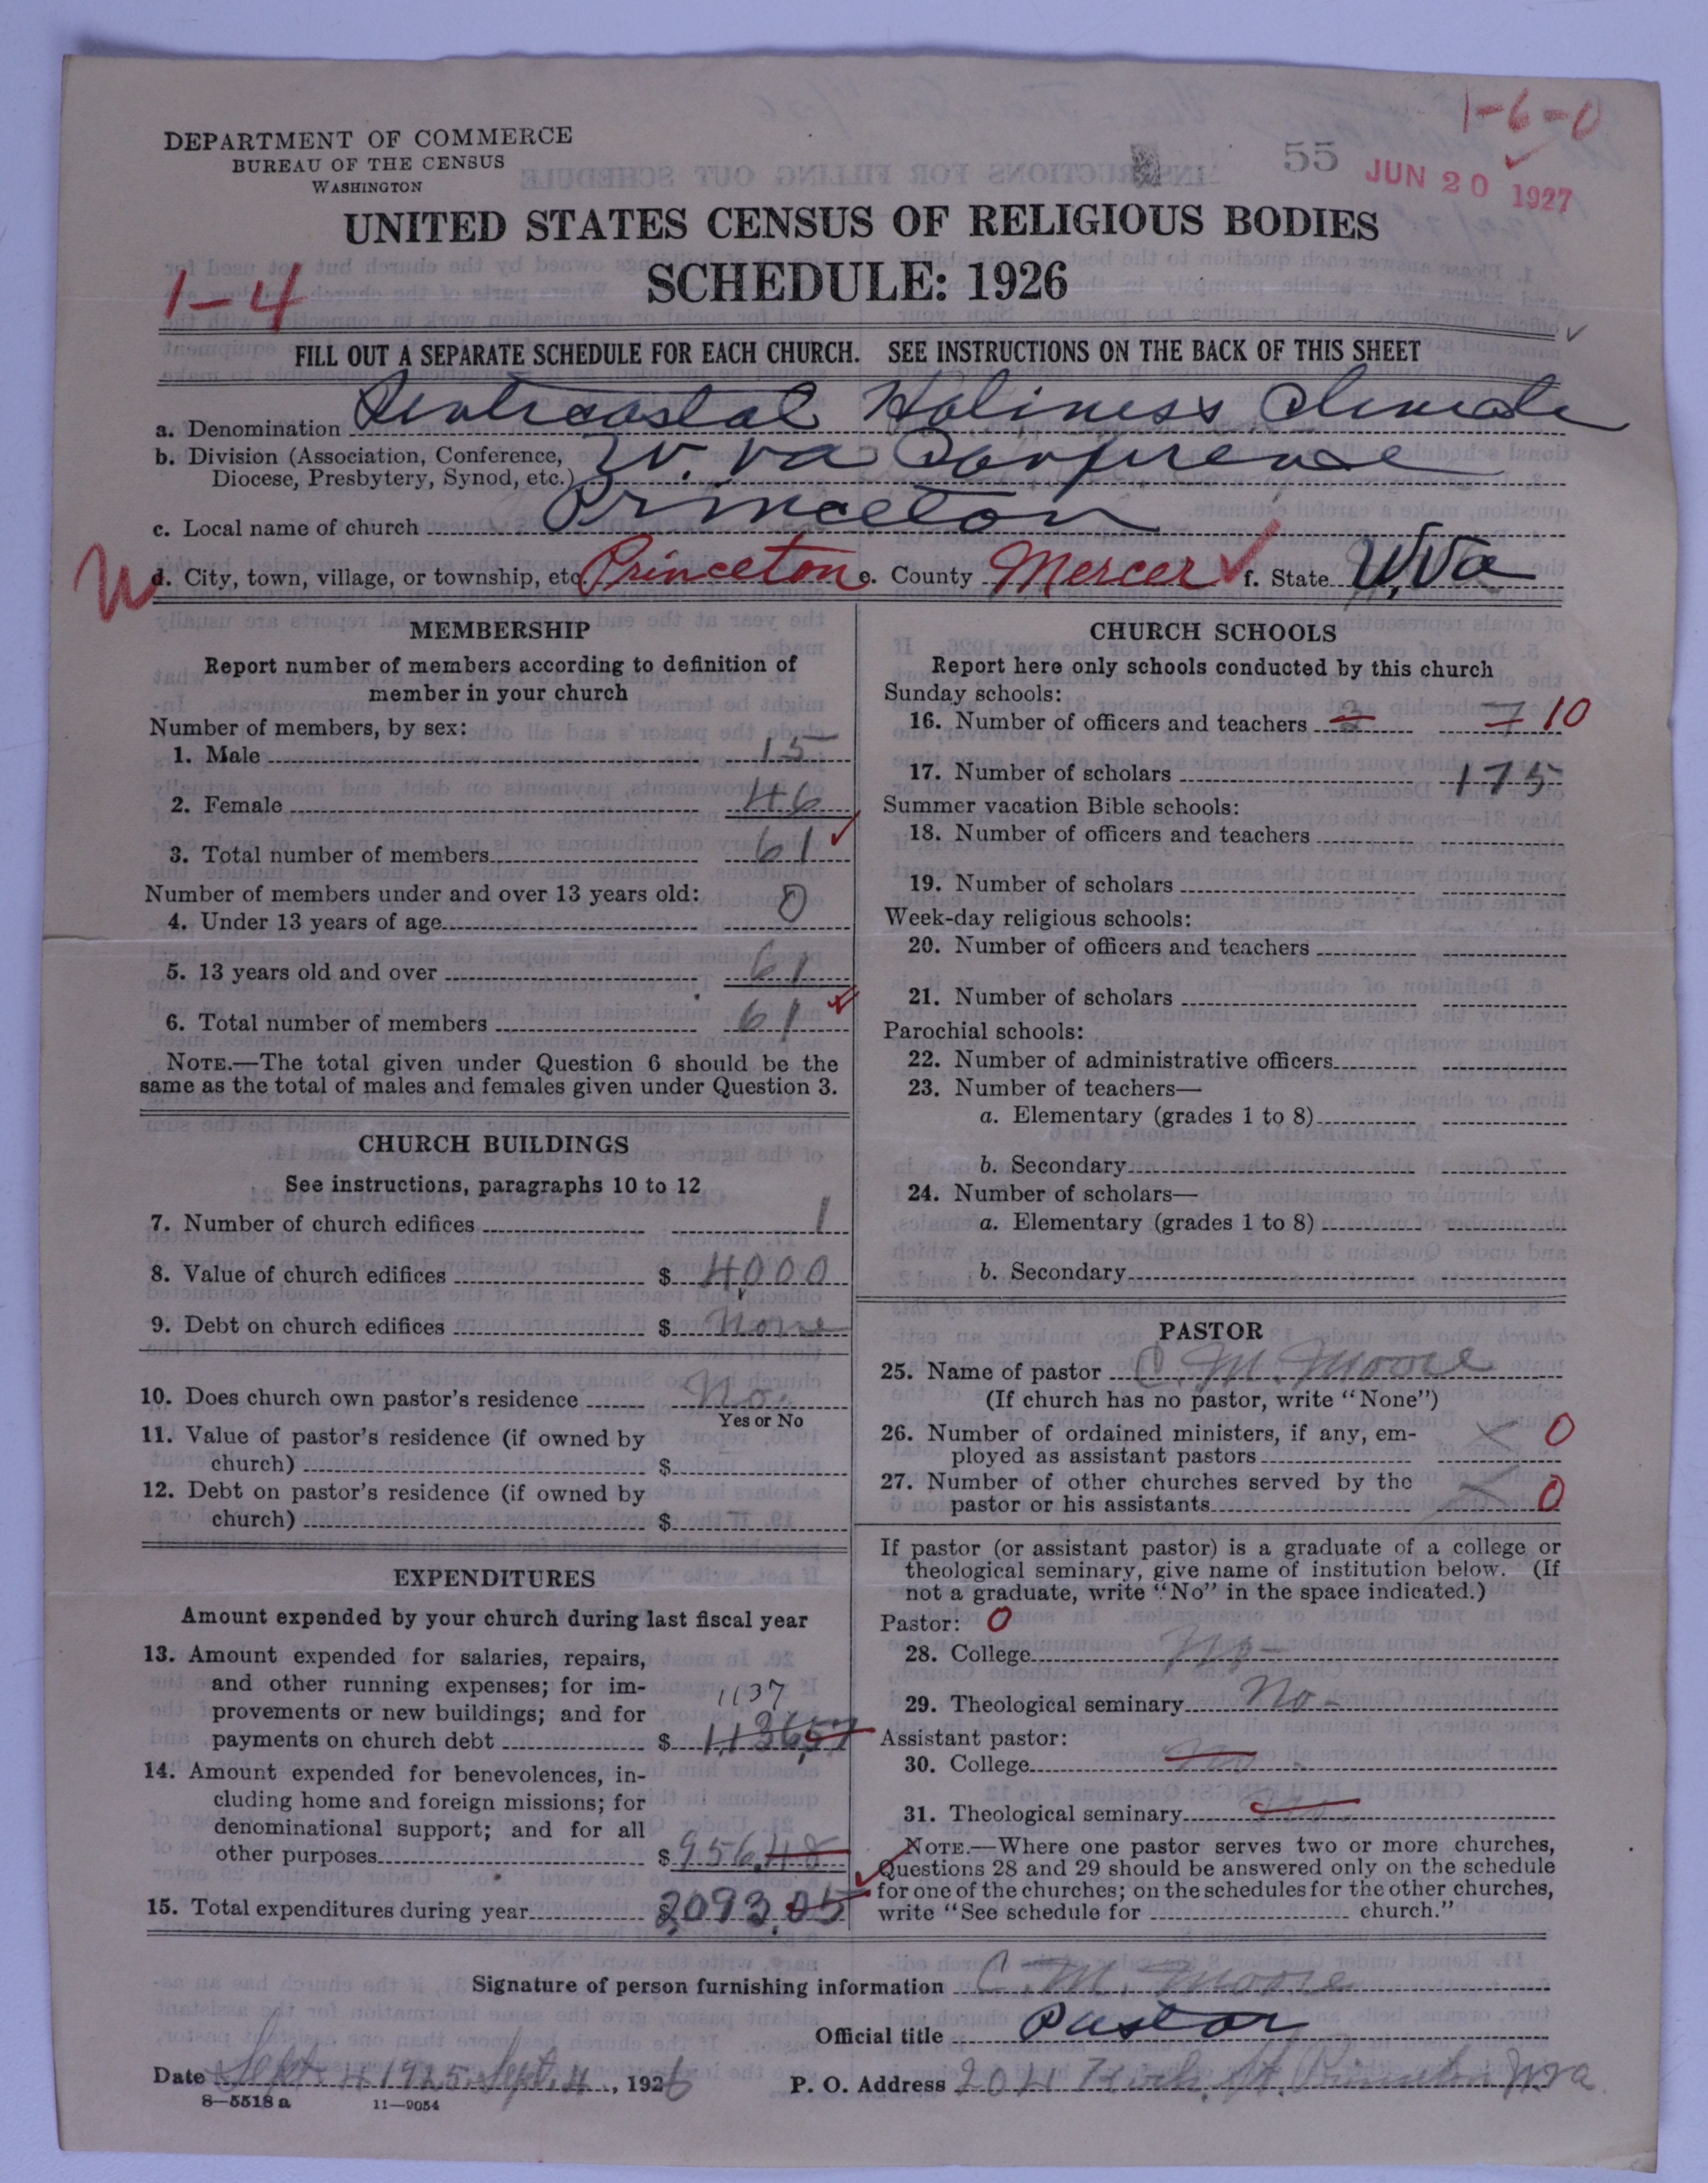 1-6-0
DEPARTMENT OF COMMERCE
BUREAU OF THE CENSUS
WASHINGTON
55 JUN 20 1927
UNITED STATES CENSUS OF RELIGIOUS BODIES
SCHEDULE: 1926
1-4
FILL OUT A SEPARATE SCHEDULE FOR EACH CHURCH. SEE INSTRUCTIONS ON THE BACK OF THIS SHEET
a. Denomination Pentecostal Holiness Church
b. Division (Association, Conference,
Diocese, Presbytery, Synod, etc.) W. Va Conference
c. Local name of church Princeton
d. City, town, village, or township, etc. Princeton e. County Mercer f. State W,Va
MEMBERSHIP
Report number of members according to definition of
member in your church
Number of members, by sex:
1. Male 15
2. Female 46
3. Total number of members 61
Number of members under and over 13 years old:
4. Under 13 years of age 0
5. 13 years old and over 61
6. Total number of members 61
NOTE.—The total given under Question 6 should be the
same as the total of males and females given under Question 3.
CHURCH BUILDINGS
See instructions, paragraphs 10 to 12
7. Number of church edifices 1
8. Value of church edifices $ 4000
9. Debt on church edifices $ None
10. Does church own pastor's residence No.
Yes or No
11. Value of pastor's residence (if owned by
church) $
12. Debt on pastor's residence (if owned by
church) $
EXPENDITURES
Amount expended by your church during last fiscal year
13. Amount expended for salaries, repairs,
and other running expenses; for im-
provements or new buildings; and for 1137
payments on church debt $ 1,136,57
14. Amount expended for benevolences, in-
cluding home and foreign missions; for
denominational support; and for all
other purposes $ 956.48
15. Total expenditures during year $ 2093.05
CHURCH SCHOOLS
Report here only schools conducted by this church
Sunday schools:
16. Number of officers and teachers 3 7 10
17. Number of scholars 175
Summer vacation Bible schools:
18. Number of officers and teachers
19. Number of scholars
Week-day religious schools:
20. Number of officers and teachers
21. Number of scholars
Parochial schools:
22. Number of administrative officers
23. Number of teachers—
a. Elementary (grades 1 to 8)
b. Secondary
24. Number of scholars—
a. Elementary (grades 1 to 8)
b. Secondary
PASTOR
25. Name of pastor C. M. Moore
(If church has no pastor, write "None")
26. Number of ordained ministers, if any, em-
ployed as assistant pastors X 0
27. Number of other churches served by the
pastor or his assistants X 0
If pastor (or assistant pastor) is a graduate of a college or
theological seminary, give name of institution below. (If
not a graduate, write "No" in the space indicated.)
Pastor: 0
28. College No-
29. Theological seminary No-
Assistant pastor:
30. College No
31. Theological seminary
NOTE.—Where one pastor serves two or more churches,
Questions 28 and 29 should be answered only on the schedule
for one of the churches; on the schedules for the other churches,
write "See schedule for church."
Signature of person furnishing information C. M. Moore
Official title Pastor
Date Sept 4 1925 Sept. 4, 1926 P. O. Address 204 St. Princeton W va
8—5518 a 11—9054